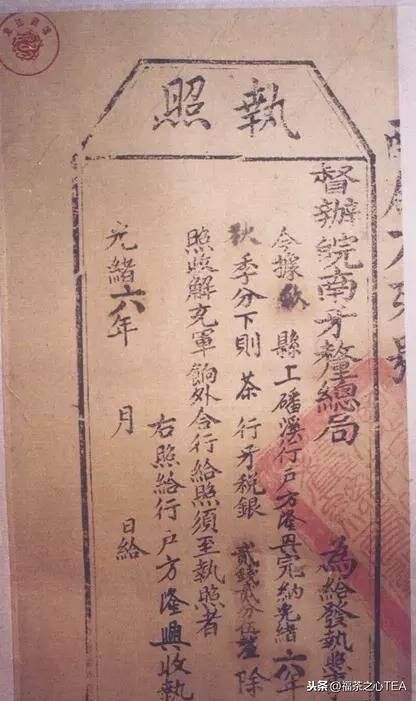 執照
督辦皖南牙釐總局 為給發執照事
今據歙縣上磻溪行戶方隆興完納光緒六年
秋季分下則茶行牙稅銀貳錢貳分伍釐除
照照解充軍餉外合行給照須至執照者
右照給行戶方隆興收執
光緒六年 月 日給
头条 @福茶之心TEA